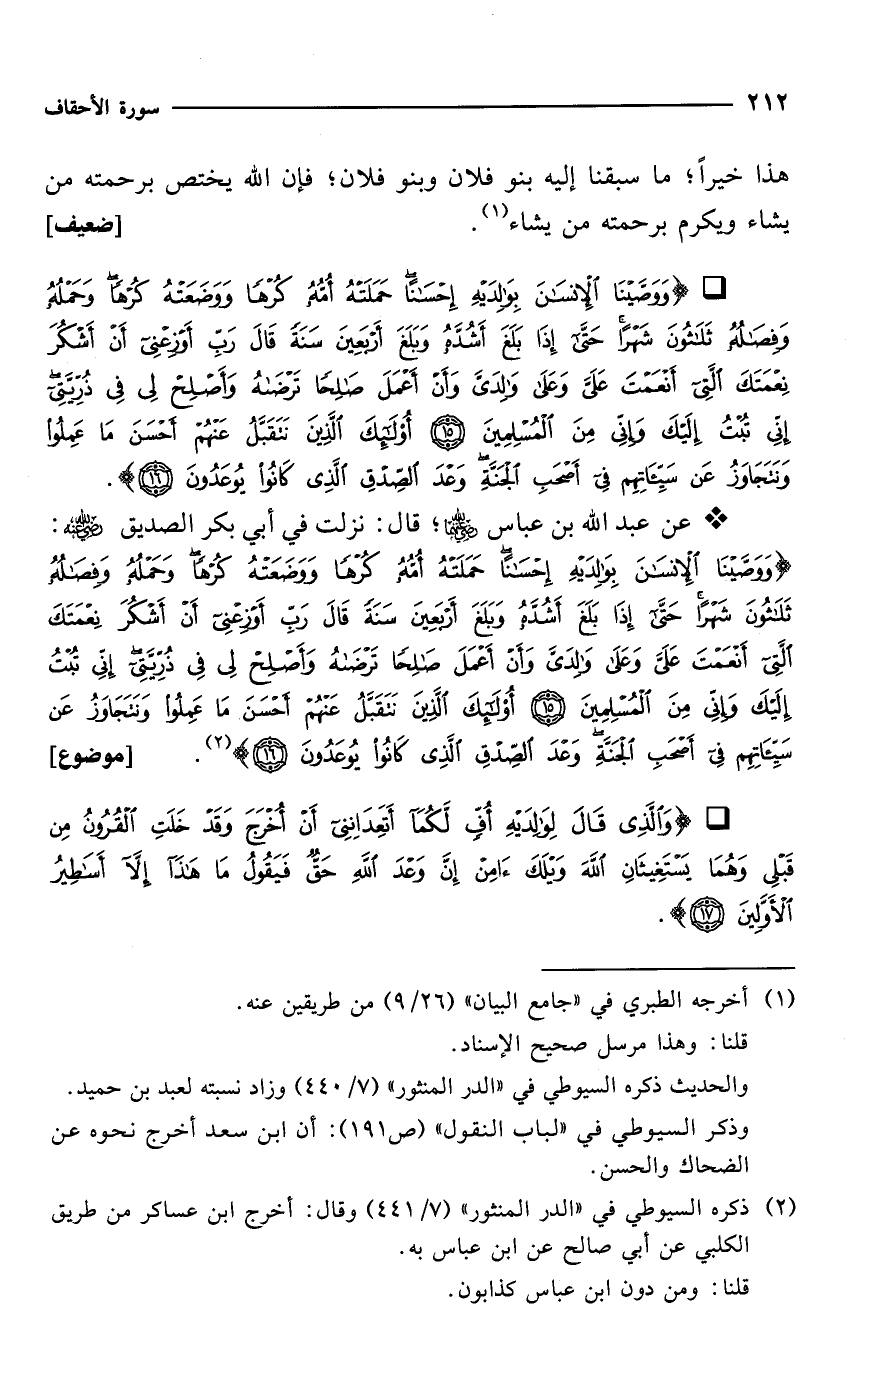 ٢١٢ سورة الأحقاف
هذا خيراً؛ ما سبقنا إليه بنو فلان وبنو فلان؛ فإن الله يختص برحمته من
يشاء ويكرم برحمته من يشاء(١). [ضعيف]
❏ ﴿وَوَصَّيْنَا ٱلْإِنسَٰنَ بِوَٰلِدَيْهِ إِحْسَٰنًا ۖ حَمَلَتْهُ أُمُّهُۥ كُرْهًا وَوَضَعَتْهُ كُرْهًا ۖ وَحَمْلُهُۥ
وَفِصَٰلُهُۥ ثَلَٰثُونَ شَهْرًا ۚ حَتَّىٰٓ إِذَا بَلَغَ أَشُدَّهُۥ وَبَلَغَ أَرْبَعِينَ سَنَةً قَالَ رَبِّ أَوْزِعْنِىٓ أَنْ أَشْكُرَ
نِعْمَتَكَ ٱلَّتِىٓ أَنْعَمْتَ عَلَىَّ وَعَلَىٰ وَٰلِدَىَّ وَأَنْ أَعْمَلَ صَٰلِحًا تَرْضَىٰهُ وَأَصْلِحْ لِى فِى ذُرِّيَّتِىٓ ۖ
إِنِّى تُبْتُ إِلَيْكَ وَإِنِّى مِنَ ٱلْمُسْلِمِينَ ١٥ أُو۟لَٰٓئِكَ ٱلَّذِينَ نَتَقَبَّلُ عَنْهُمْ أَحْسَنَ مَا عَمِلُوا۟
وَنَتَجَاوَزُ عَن سَيِّـَٔاتِهِمْ فِىٓ أَصْحَٰبِ ٱلْجَنَّةِ ۖ وَعْدَ ٱلصِّدْقِ ٱلَّذِى كَانُوا۟ يُوعَدُونَ ١٦﴾.
❖ عن عبد الله بن عباس رضي الله عنهما؛ قال: نزلت في أبي بكر الصديق رضي الله عنه:
﴿وَوَصَّيْنَا ٱلْإِنسَٰنَ بِوَٰلِدَيْهِ إِحْسَٰنًا ۖ حَمَلَتْهُ أُمُّهُۥ كُرْهًا وَوَضَعَتْهُ كُرْهًا ۖ وَحَمْلُهُۥ وَفِصَٰلُهُۥ
ثَلَٰثُونَ شَهْرًا ۚ حَتَّىٰٓ إِذَا بَلَغَ أَشُدَّهُۥ وَبَلَغَ أَرْبَعِينَ سَنَةً قَالَ رَبِّ أَوْزِعْنِىٓ أَنْ أَشْكُرَ نِعْمَتَكَ
ٱلَّتِىٓ أَنْعَمْتَ عَلَىَّ وَعَلَىٰ وَٰلِدَىَّ وَأَنْ أَعْمَلَ صَٰلِحًا تَرْضَىٰهُ وَأَصْلِحْ لِى فِى ذُرِّيَّتِىٓ ۖ إِنِّى تُبْتُ
إِلَيْكَ وَإِنِّى مِنَ ٱلْمُسْلِمِينَ ١٥ أُو۟لَٰٓئِكَ ٱلَّذِينَ نَتَقَبَّلُ عَنْهُمْ أَحْسَنَ مَا عَمِلُوا۟ وَنَتَجَاوَزُ عَن
سَيِّـَٔاتِهِمْ فِىٓ أَصْحَٰبِ ٱلْجَنَّةِ ۖ وَعْدَ ٱلصِّدْقِ ٱلَّذِى كَانُوا۟ يُوعَدُونَ ١٦﴾(٢). [موضوع]
❏ ﴿وَٱلَّذِى قَالَ لِوَٰلِدَيْهِ أُفٍّ لَّكُمَآ أَتَعِدَانِنِىٓ أَنْ أُخْرَجَ وَقَدْ خَلَتِ ٱلْقُرُونُ مِن
قَبْلِى وَهُمَا يَسْتَغِيثَانِ ٱللَّهَ وَيْلَكَ ءَامِنْ إِنَّ وَعْدَ ٱللَّهِ حَقٌّ فَيَقُولُ مَا هَٰذَآ إِلَّآ أَسَٰطِيرُ
ٱلْأَوَّلِينَ ١٧﴾.
(١) أخرجه الطبري في «جامع البيان» (٩/٢٦) من طريقين عنه.
قلنا: وهذا مرسل صحيح الإسناد.
والحديث ذكره السيوطي في «الدر المنثور» (٤٤٠/٧) وزاد نسبته لعبد بن حميد.
وذكر السيوطي في «لباب النقول» (ص١٩١): أن ابن سعد أخرج نحوه عن
الضحاك والحسن.
(٢) ذكره السيوطي في «الدر المنثور» (٤٤١/٧) وقال: أخرج ابن عساكر من طريق
الكلبي عن أبي صالح عن ابن عباس به.
قلنا: ومن دون ابن عباس كذابون.